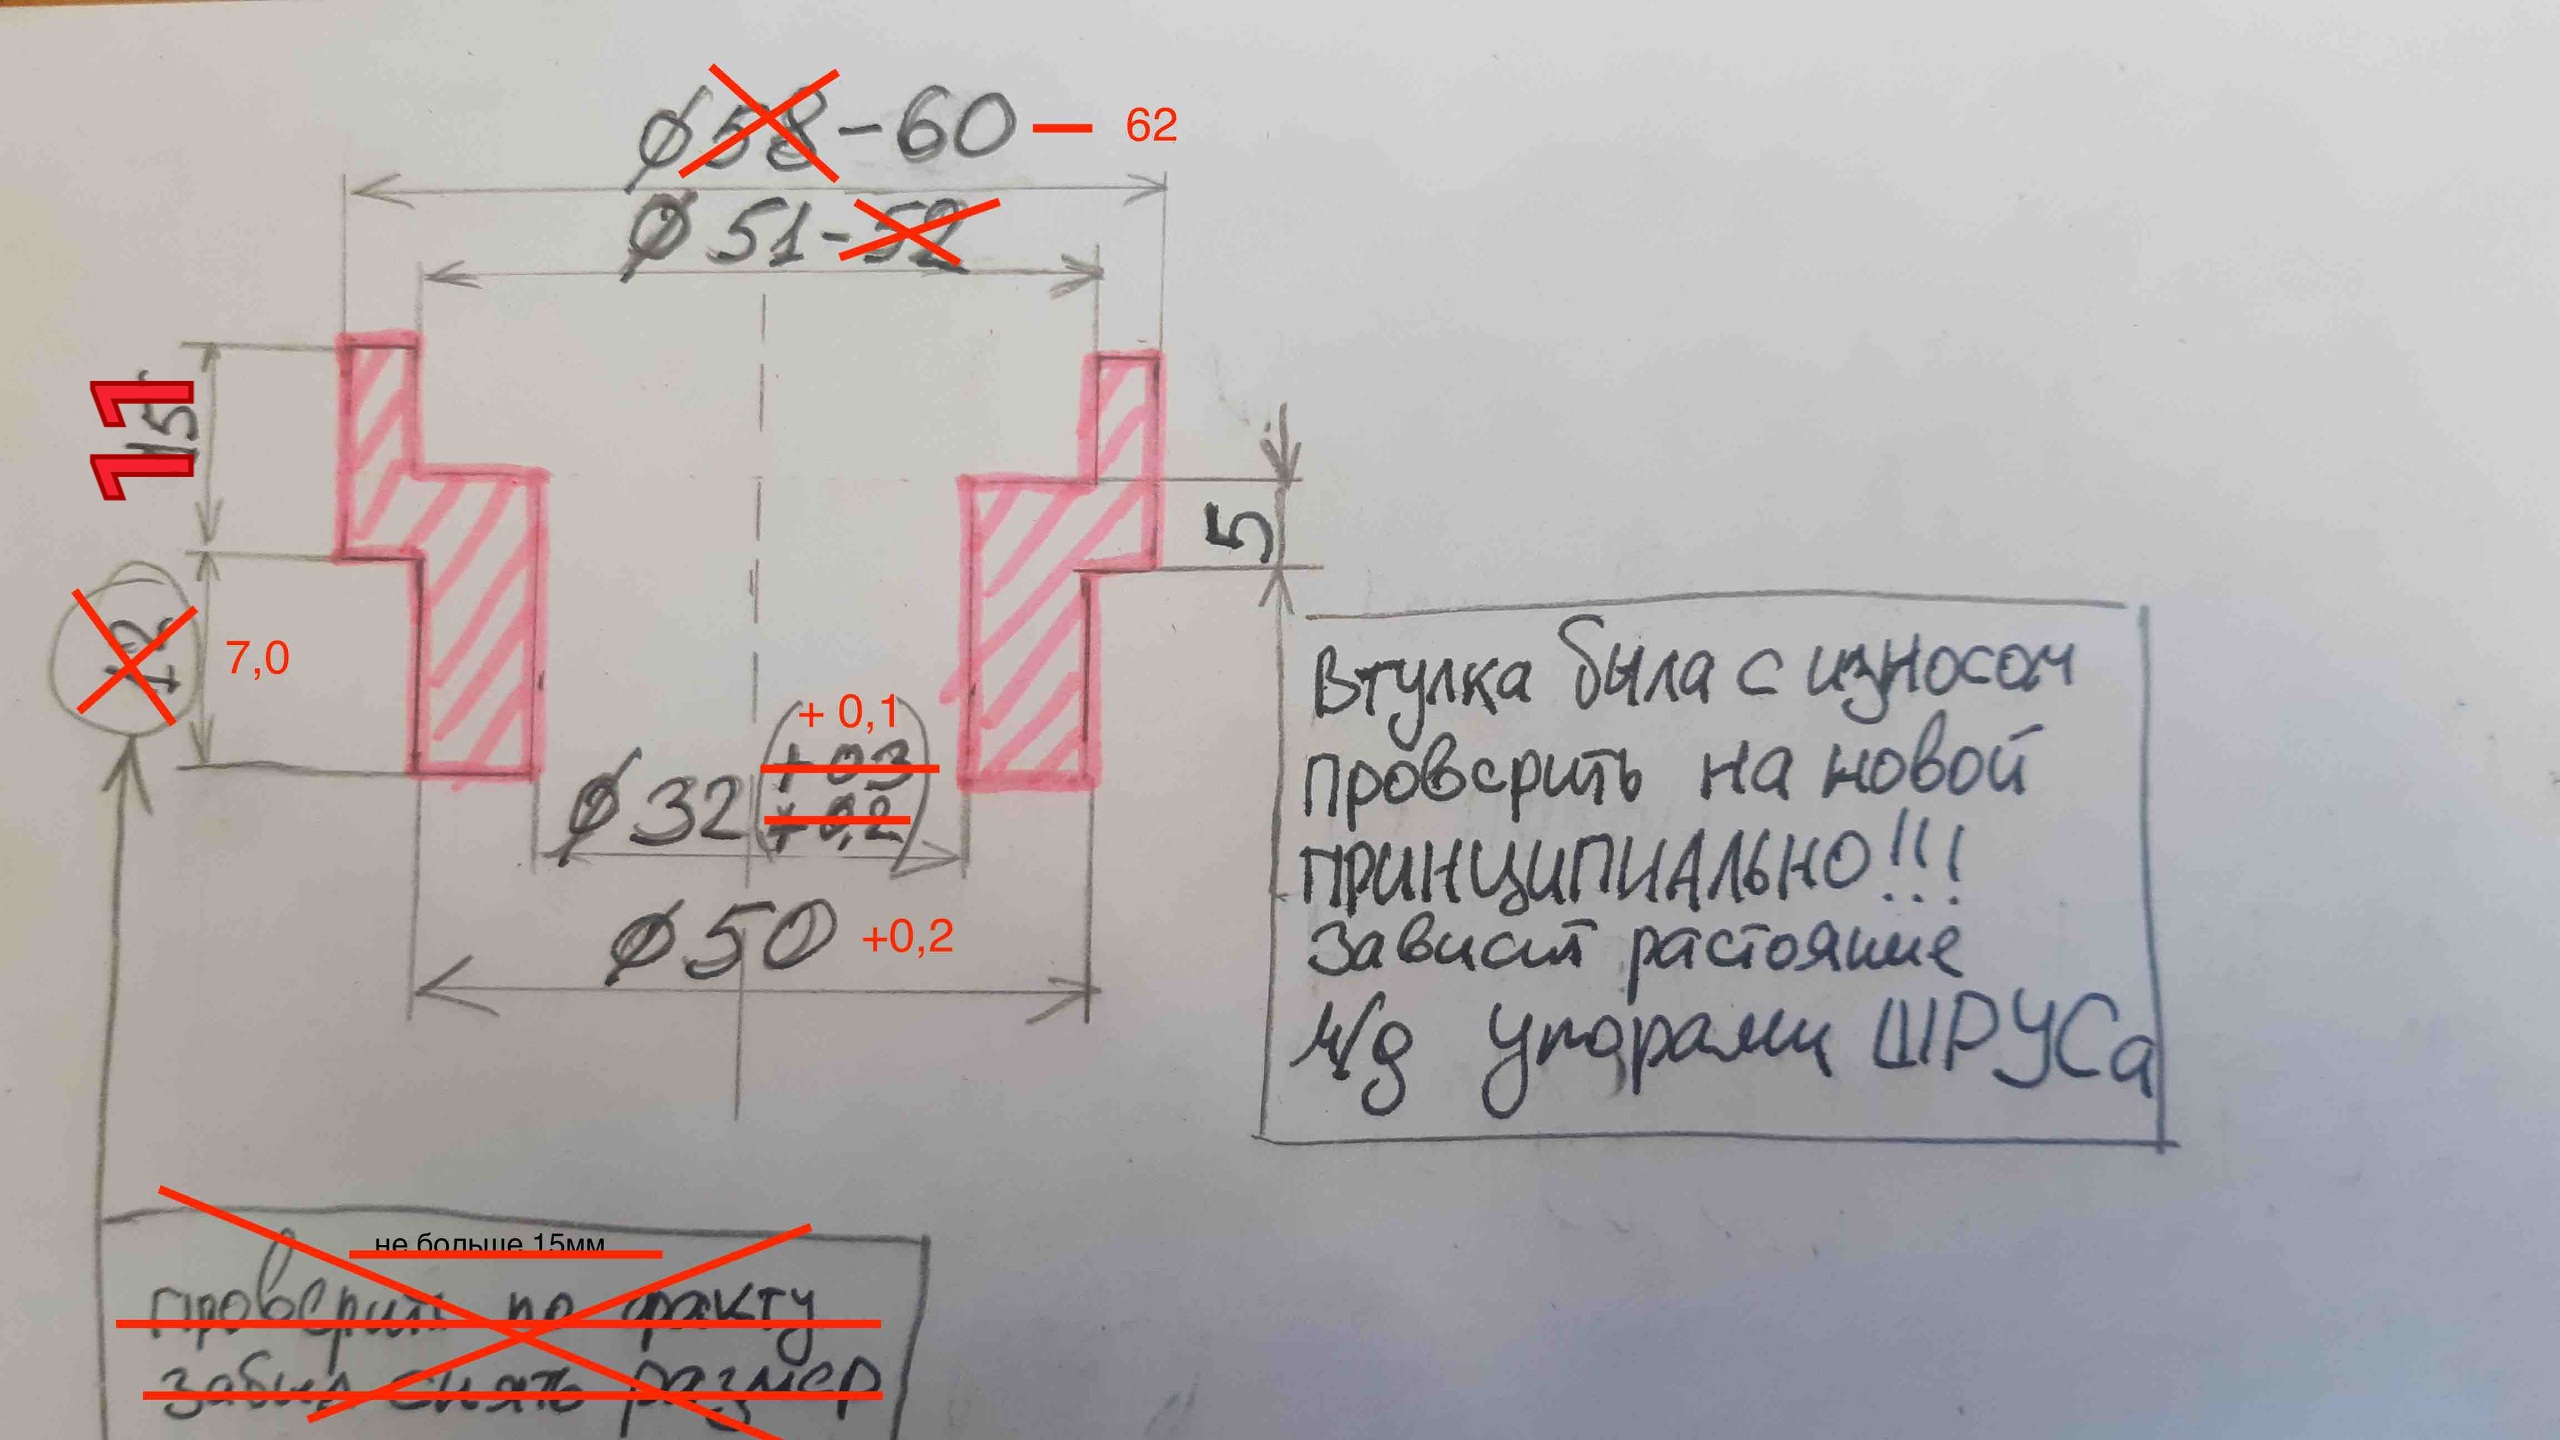 ø58-60 — 62
ø 51-52
15
11
5
12
7,0
+ 0,1
ø32 (+ 0,3
+ 0,2)
ø50 +0,2
Втулка была с износом
проверить на новой
ПРИНЦИПИАЛЬНО!!!
Зависит растояние
м/д упорами ШРУСа
не больше 15мм
проверить по факту
забыл снять размер